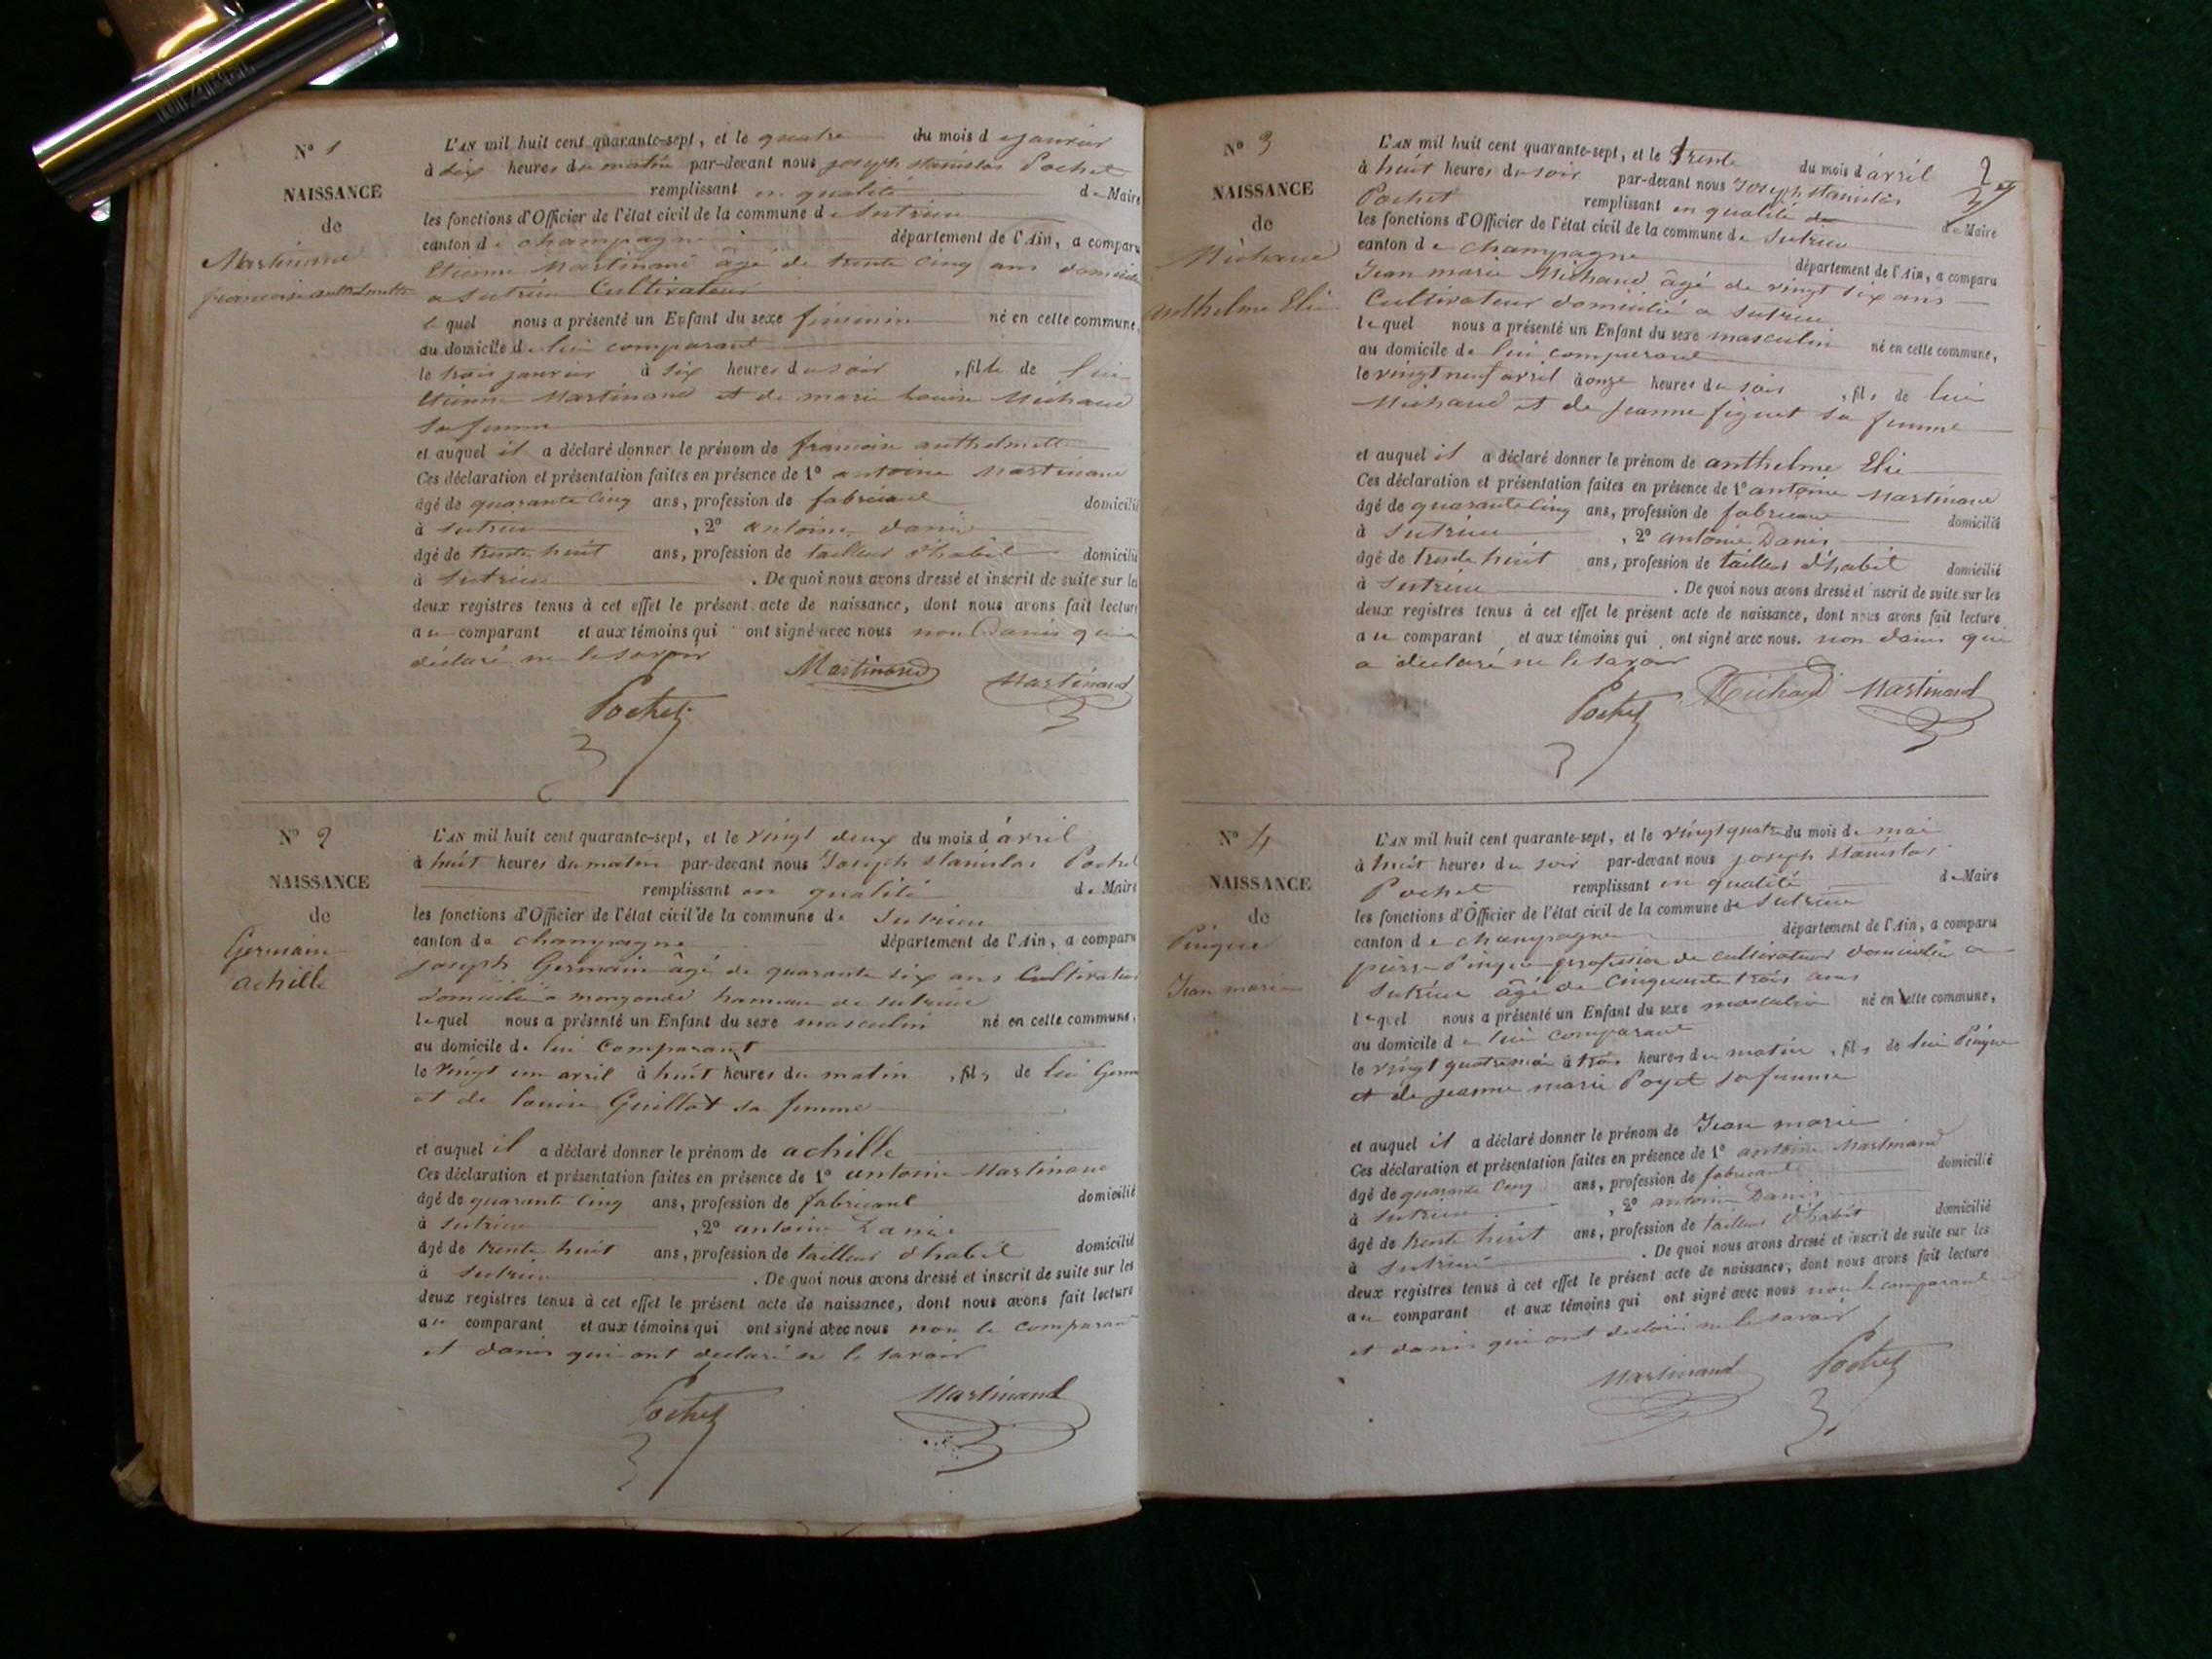 N° 1
NAISSANCE
de
Martinand
francoise anthelmette
L'AN mil huit cent quarante-sept, et le quatre du mois d janvier
à dix heures du matin par-devant nous joseph stanislas Pochet
remplissant en qualité de Maire
les fonctions d'Officier de l'état civil de la commune d Sutrieu
canton de champagne département de l'Ain, a comparu
Etienne Martinand âgé de trente cinq ans domicilié
a Sutrieu Cultivateur
lequel nous a présenté un Enfant du sexe féminin né en cette commune,
au domicile de lui comparant
le trois janvier à six heures du soir, fille de lui
Etienne Martinand et de marie Louise Michaud
sa femme
et auquel il a déclaré donner le prénom de francoise anthelmette
Ces déclaration et présentation faites en présence de 1° antoine Martinand
âgé de quarante cinq ans, profession de fabricant domicilié
à Sutrieu, 2° antoine danis
âgé de trente huit ans, profession de tailleur d'habit domicilié
à Sutrieu. De quoi nous avons dressé et inscrit de suite sur les
deux registres tenus à cet effet le présent acte de naissance, dont nous avons fait lecture
au comparant et aux témoins qui ont signé avec nous non Danis qui a
déclaré ne le savoir
Martinand Martinand
Pochet
N° 2
NAISSANCE
de
Germain
achille
L'AN mil huit cent quarante-sept, et le vingt deux du mois d avril
à huit heures du matin par-devant nous Joseph stanislas Pochet
remplissant en qualité de Maire
les fonctions d'Officier de l'état civil de la commune de Sutrieu
canton de champagne département de l'Ain, a comparu
joseph Germain âgé de quarante six ans Cultivateur
domicilié a mongonod hameau de sutrieu
lequel nous a présenté un Enfant du sexe masculin né en cette commune,
au domicile de lui Comparant
le vingt un avril à huit heures du matin, fils de lui Germ
et de louise Guillot sa femme
et auquel il a déclaré donner le prénom de achille
Ces déclaration et présentation faites en présence de 1° antoine Martinand
âgé de quarante cinq ans, profession de fabricant domicilié
à Sutrieu, 2° antoine Danis
âgé de trente huit ans, profession de tailleur d'habit domicilié
à Sutrieu. De quoi nous avons dressé et inscrit de suite sur les
deux registres tenus à cet effet le présent acte de naissance, dont nous avons fait lecture
au comparant et aux témoins qui ont signé avec nous non le comparant
et danis qui ont déclaré ne le savoir
Pochet Martinand
2
N° 3
NAISSANCE
de
Michaud
anthelme Elie
L'AN mil huit cent quarante-sept, et le trente du mois d avril
à huit heures du soir par-devant nous Joseph stanislas
Pochet remplissant en qualité de de Maire
les fonctions d'Officier de l'état civil de la commune de Sutrieu
canton de champagne département de l'Ain, a comparu
Jean marie Michaud âgé de vingt six ans
Cultivateur domicilié a Sutrieu
lequel nous a présenté un Enfant du sexe masculin né en cette commune,
au domicile de lui comparant
le vingt neuf avril à onze heures du soir, fils de lui
Michaud et de jeanne figuet sa femme
et auquel il a déclaré donner le prénom de anthelme Elie
Ces déclaration et présentation faites en présence de 1° antoine Martinand
âgé de quarante cinq ans, profession de fabricant domicilié
à Sutrieu, 2° antoine Danis
âgé de trente huit ans, profession de tailleur d'habit domicilié
à Sutrieu. De quoi nous avons dressé et inscrit de suite sur les
deux registres tenus à cet effet le présent acte de naissance, dont nous avons fait lecture
au comparant et aux témoins qui ont signé avec nous. non danis qui
a déclaré ne le savoir
Pochet Michaud Martinand
N° 4
NAISSANCE
de
Pingue
Jean marie
L'AN mil huit cent quarante-sept, et le vingt quatre du mois de mai
à huit heures du soir par-devant nous joseph stanislas
Pochet remplissant en qualité de Maire
les fonctions d'Officier de l'état civil de la commune de Sutrieu
canton de champagne département de l'Ain, a comparu
pierre Pingue profession de cultivateur domicilié a
Sutrieu âgé de Cinquante trois ans
lequel nous a présenté un Enfant du sexe masculin né en cette commune,
au domicile de lui comparant
le vingt quatre mai à trois heures du matin, fils de lui Pingue
et de jeanne marie Poyet sa femme
et auquel il a déclaré donner le prénom de Jean marie
Ces déclaration et présentation faites en présence de 1° antoine Martinand
âgé de quarante cinq ans, profession de fabricant domicilié
à Sutrieu, 2° antoine Danis
âgé de trente huit ans, profession de tailleur d'habit domicilié
à Sutrieu. De quoi nous avons dressé et inscrit de suite sur les
deux registres tenus à cet effet le présent acte de naissance, dont nous avons fait lecture
au comparant et aux témoins qui ont signé avec nous non le comparant
et danis qui ont déclaré ne le savoir
Martinand Pochet